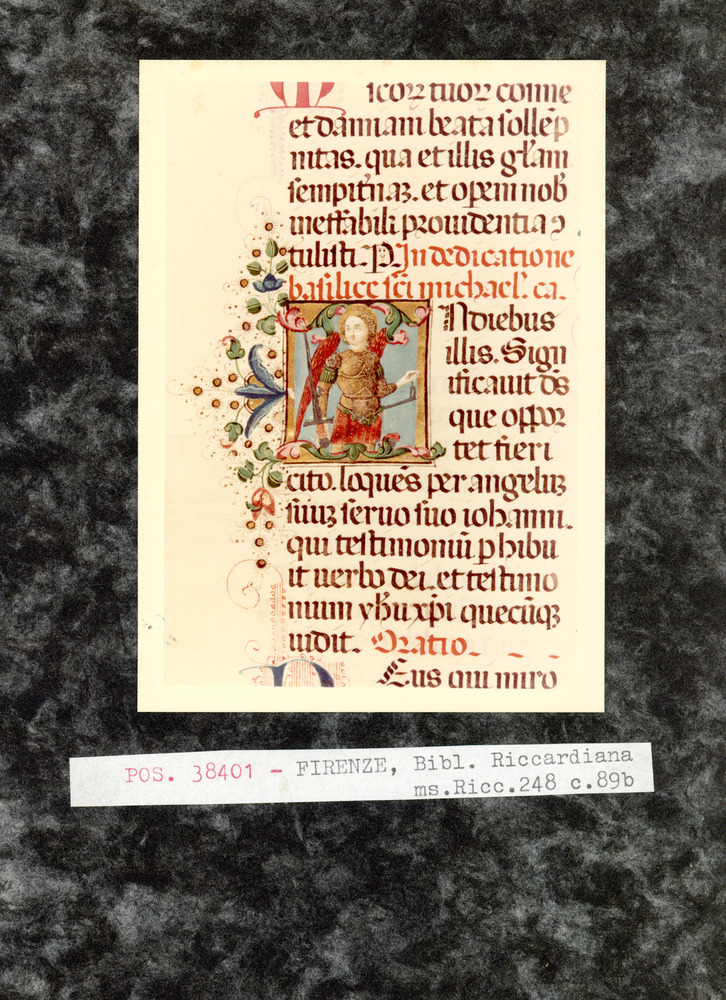 icoꝝ tuoꝝ cosme
et dãmiam beata sollẽp
nitas. qua et illis gl̃am
sempit̃naꝫ. et opem nob̃
ineffabili prouidentia ꝯ
tulisti. P. In dedicatione
basilice sc̃i michael̃. ca.
Ndiebus
illis. Sign
ificauit d̃s
que oppor
tet fieri
cito. loquẽs per angeluꝫ
suuꝫ seruo suo iohanni.
qui testimoniũ ꝑhibu
it uerbo dei. et testimo
nium yh̃u xp̃i quecũqꝫ
uidit. Oratio.
Eus qui miro
POS. 38401 - FIRENZE, Bibl. Riccardiana
ms.Ricc.248 c.89b